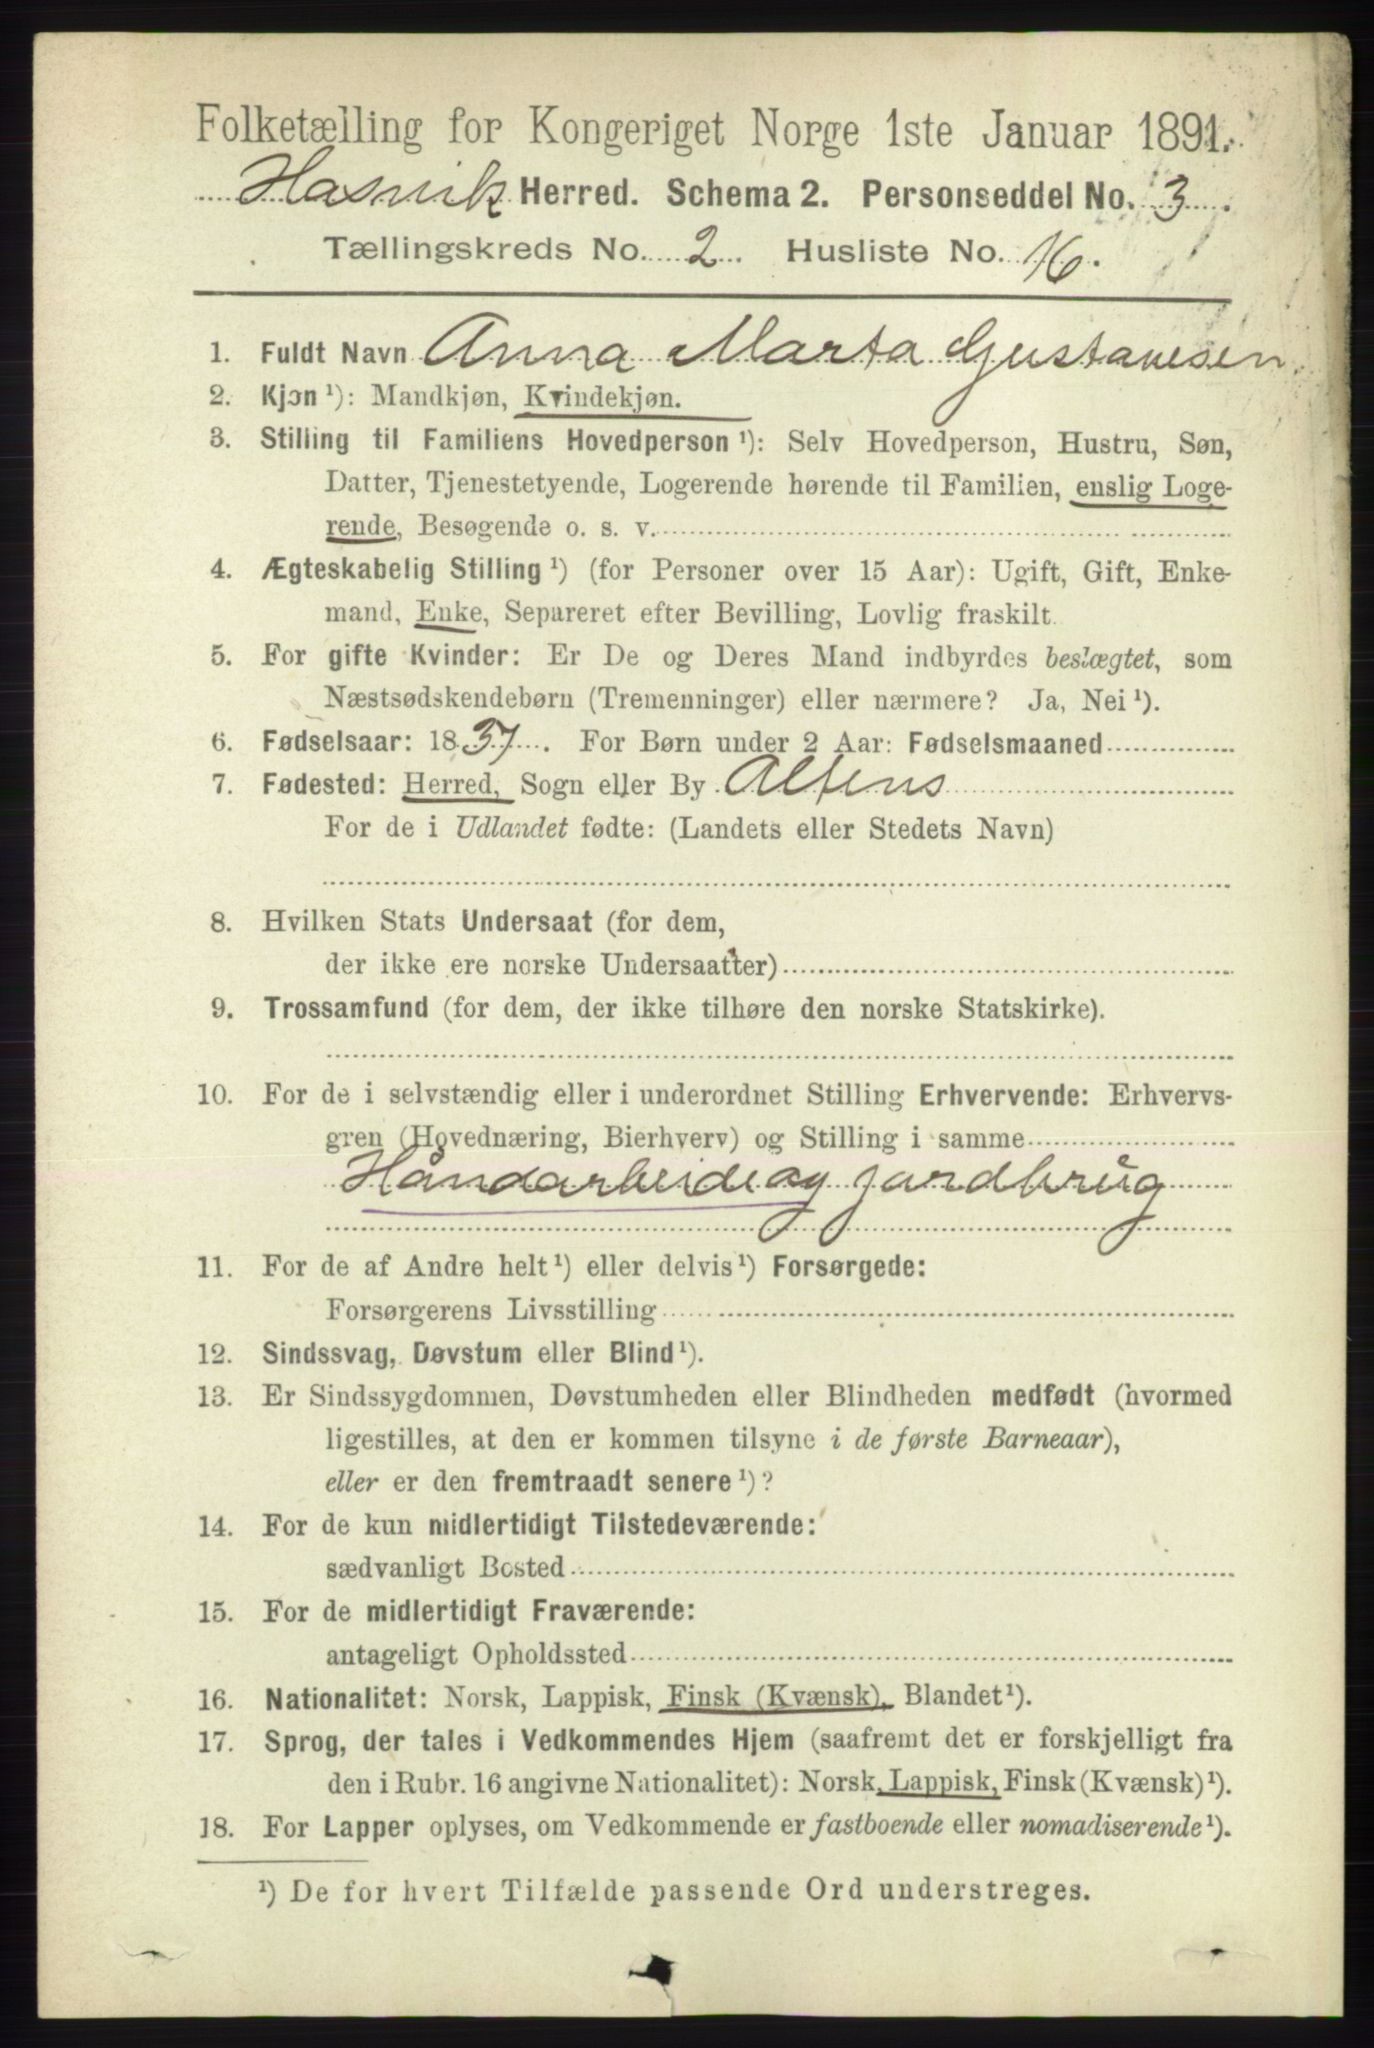 Folketælling for Kongeriget Norge 1ste Januar 1891.
Hasvik Herred. Schema 2. Personseddel No. 3.
Tællingskreds No. 2. Husliste No. 16.
1. Fuldt Navn Anna Marta Gustavesen
2. Kjøn ¹): Mandkjøn, Kvindekjøn.
3. Stilling til Familiens Hovedperson ¹): Selv Hovedperson, Hustru, Søn,
Datter, Tjenestetyende, Logerende hørende til Familien, enslig Loge-
rende, Besøgende o. s. v.
4. Ægteskabelig Stilling ¹) (for Personer over 15 Aar): Ugift, Gift, Enke-
mand, Enke, Separeret efter Bevilling, Lovlig fraskilt.
5. For gifte Kvinder: Er De og Deres Mand indbyrdes beslægtet, som
Næstsødskendebørn (Tremenninger) eller nærmere? Ja, Nei ¹).
6. Fødselsaar: 1837. For Børn under 2 Aar: Fødselsmaaned
7. Fødested: Herred, Sogn eller By Altens
For de i Udlandet fødte: (Landets eller Stedets Navn)
8. Hvilken Stats Undersaat (for dem,
der ikke ere norske Undersaatter)
9. Trossamfund (for dem, der ikke tilhøre den norske Statskirke).
10. For de i selvstændig eller i underordnet Stilling Erhvervende: Erhvervs-
gren (Hovednæring, Bierhverv) og Stilling i samme
Håndarbeide og jordbrug
11. For de af Andre helt ¹) eller delvis ¹) Forsørgede:
Forsørgerens Livsstilling
12. Sindssvag, Døvstum eller Blind ¹).
13. Er Sindssygdommen, Døvstumheden eller Blindheden medfødt (hvormed
ligestilles, at den er kommen tilsyne i de første Barneaar),
eller er den fremtraadt senere ¹)?
14. For de kun midlertidigt Tilstedeværende:
sædvanligt Bosted
15. For de midlertidigt Fraværende:
antageligt Opholdssted
16. Nationalitet: Norsk, Lappisk, Finsk (Kvænsk), Blandet ¹).
17. Sprog, der tales i Vedkommendes Hjem (saafremt det er forskjelligt fra
den i Rubr. 16 angivne Nationalitet): Norsk, Lappisk, Finsk (Kvænsk) ¹).
18. For Lapper oplyses, om Vedkommende er fastboende eller nomadiserende ¹).
¹) De for hvert Tilfælde passende Ord understreges.